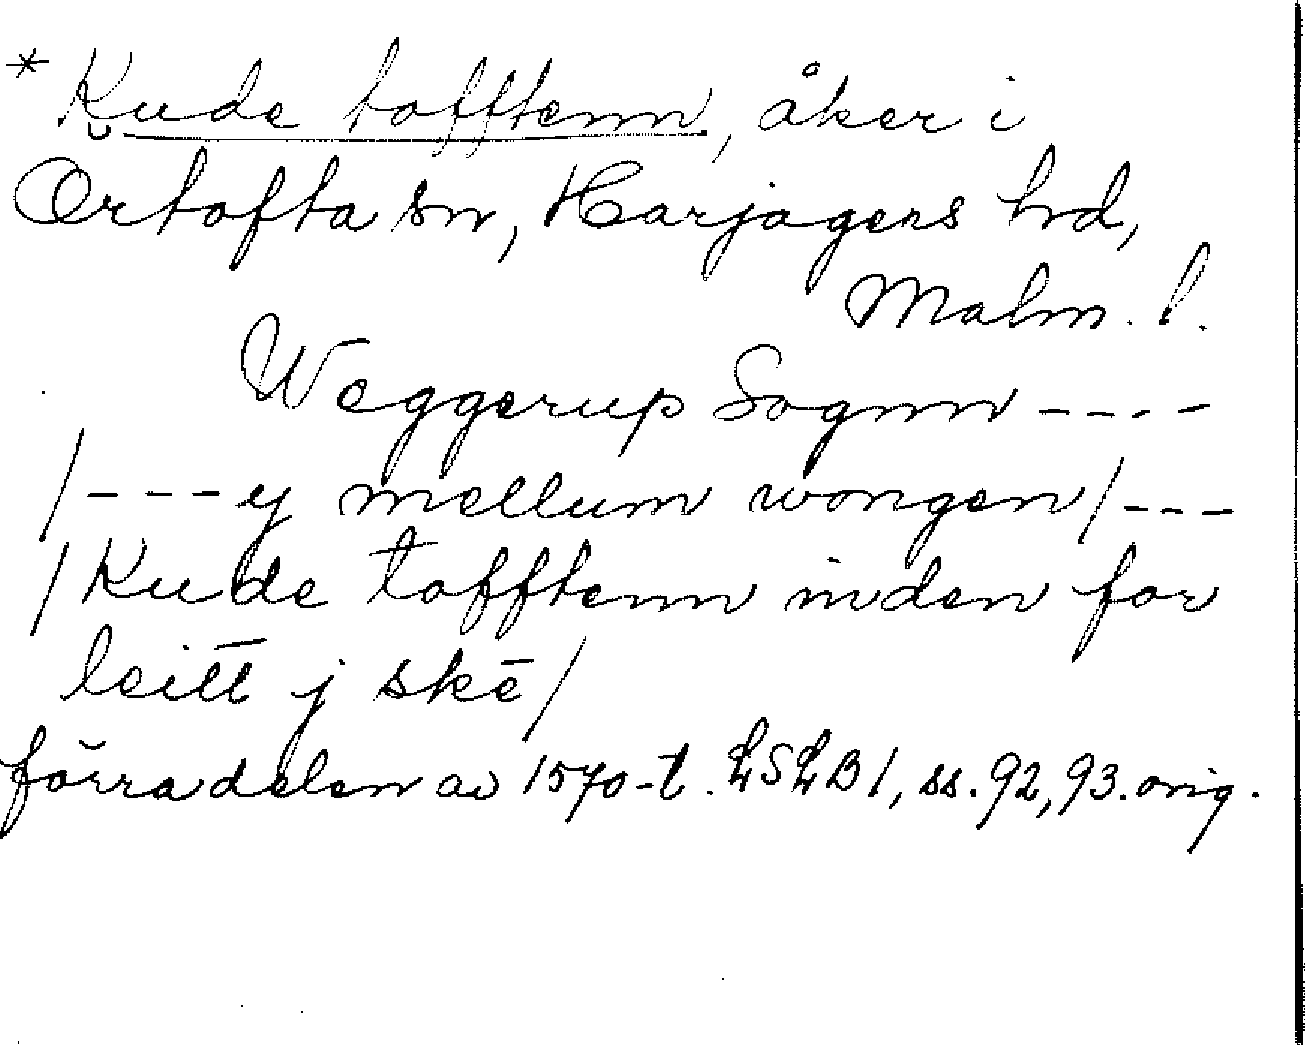 * Kude tofftenn, åker i
Örtofta sn, Harjagers hd,
Malm. l.
Weggerup Sognn ----
/---y mellum wongen/---
/Kude tofftenn inden for
leitt j skē/
förra delen av 1570-t. LSLB 1, ss. 92, 93. orig.